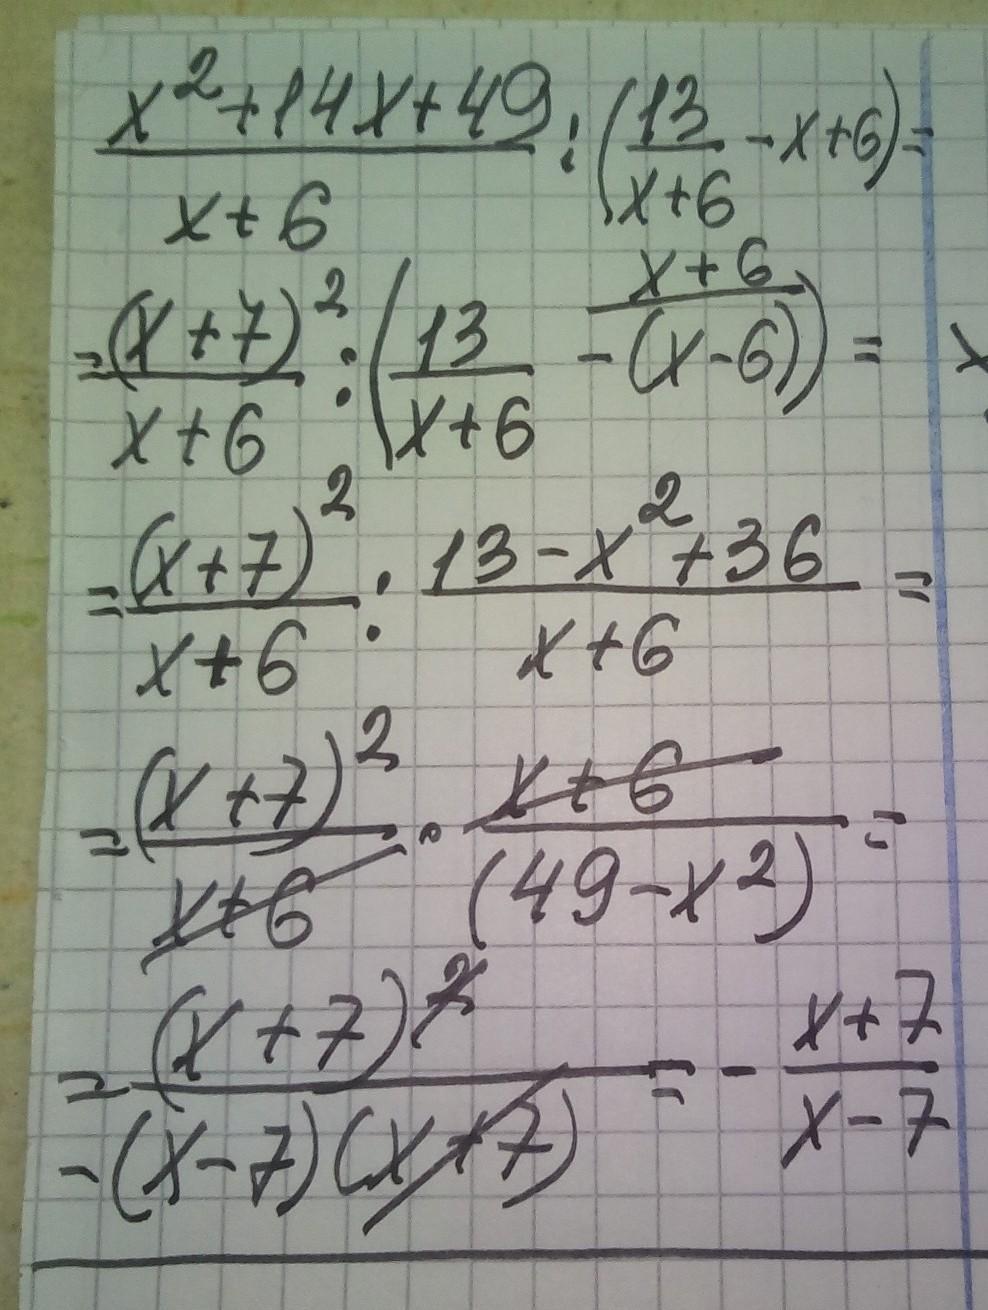 (x²+14x+49)/(x+6) : (13/(x+6) - x+6) =
= (x+7)²/(x+6) : (13/(x+6) - (x-6)^(x+6)) = x
= (x+7)²/(x+6) : (13-x²+36)/(x+6) =
= (x+7)²/(x+6) · (x+6)/(49-x²) =
= (x+7)²/(-(x-7)(x+7)) = - (x+7)/(x-7)